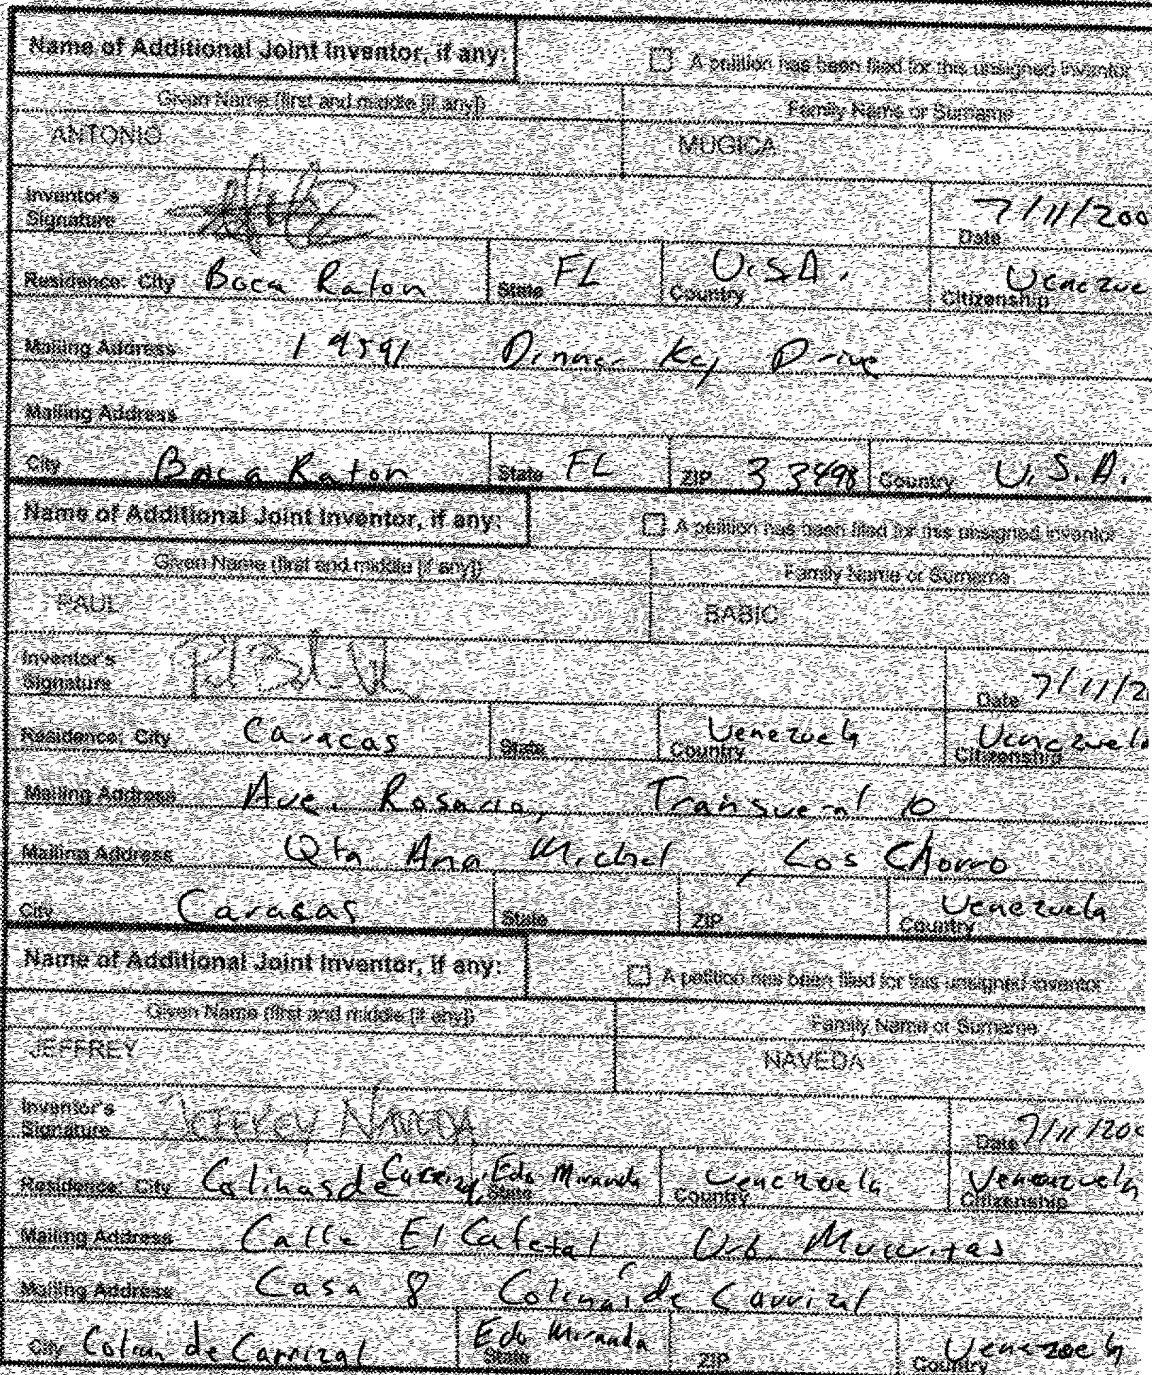 Name of Additional Joint Inventor, if any: A petition has been filed for this unsigned inventor
Given Name (first and middle [if any]) Family Name or Surname
ANTONIO MUGICA
Inventor's Signature Date 7/11/200
Residence: City Boca Raton State FL Country U.S.A. Citizenship Venezue
Mailing Address 19591 Dinner Key Drive
Mailing Address
City Boca Raton State FL ZIP 33498 Country U.S.A.
Name of Additional Joint Inventor, if any: A petition has been filed for this unsigned inventor
Given Name (first and middle [if any]) Family Name or Surname
PAUL BABIC
Inventor's Signature Date 7/11/2
Residence: City Caracas State Country Venezuela Citizenship Venezuela
Mailing Address Ave. Rosario, Transversal 10
Mailing Address Qta Ana Michel, Los Chorro
City Carasas State ZIP Country Venezuela
Name of Additional Joint Inventor, if any: A petition has been filed for this unsigned inventor
Given Name (first and middle [if any]) Family Name or Surname
JEFFREY NAVEDA
Inventor's Signature JEFFREY NAVEDA Date 7/11/200
Residence: City Colinas de Carrizal, State Edo Miranda Country Venezuela Citizenship Venezuela
Mailing Address Calle El Cafetal Urb
Mailing Address Casa 8 Colinas de Carrizal
City Colin de Carrizal State Edo Miranda ZIP Country Venezuela